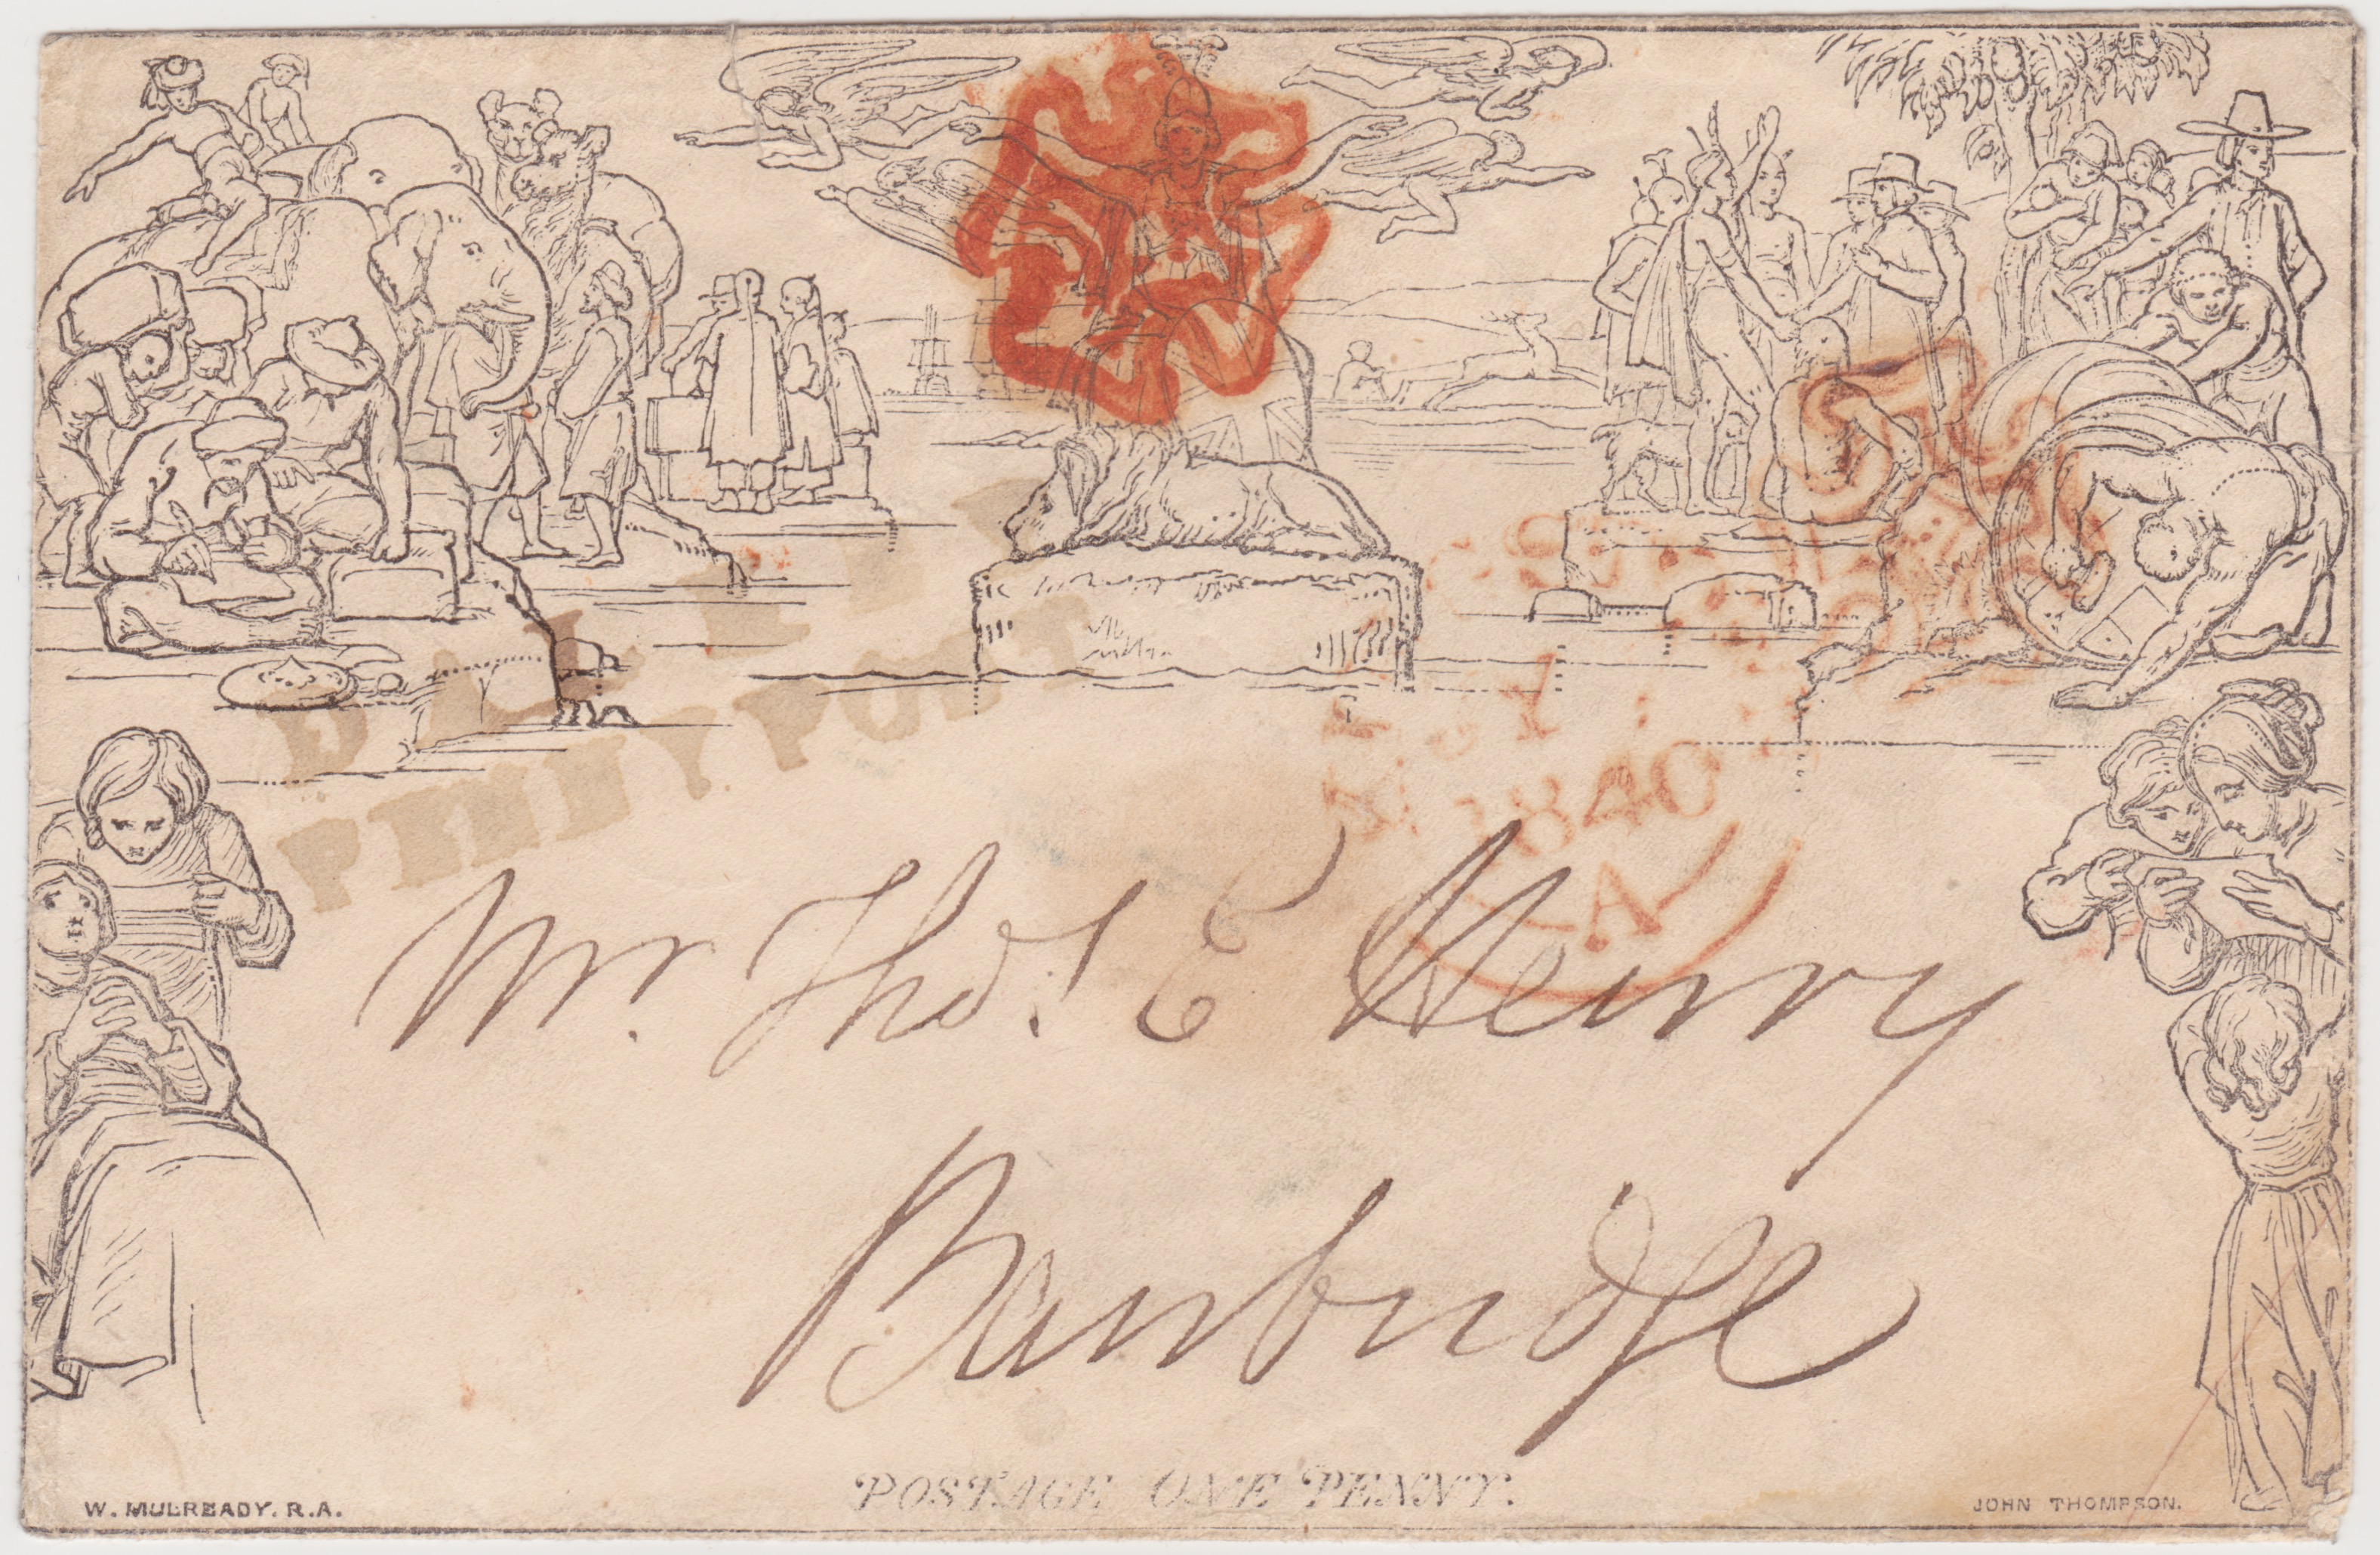 PENNY POST
1840
A
Mr. Thos. E Henry
Banbridge
POSTAGE ONE PENNY.
W. MULREADY. R.A.
JOHN THOMPSON.